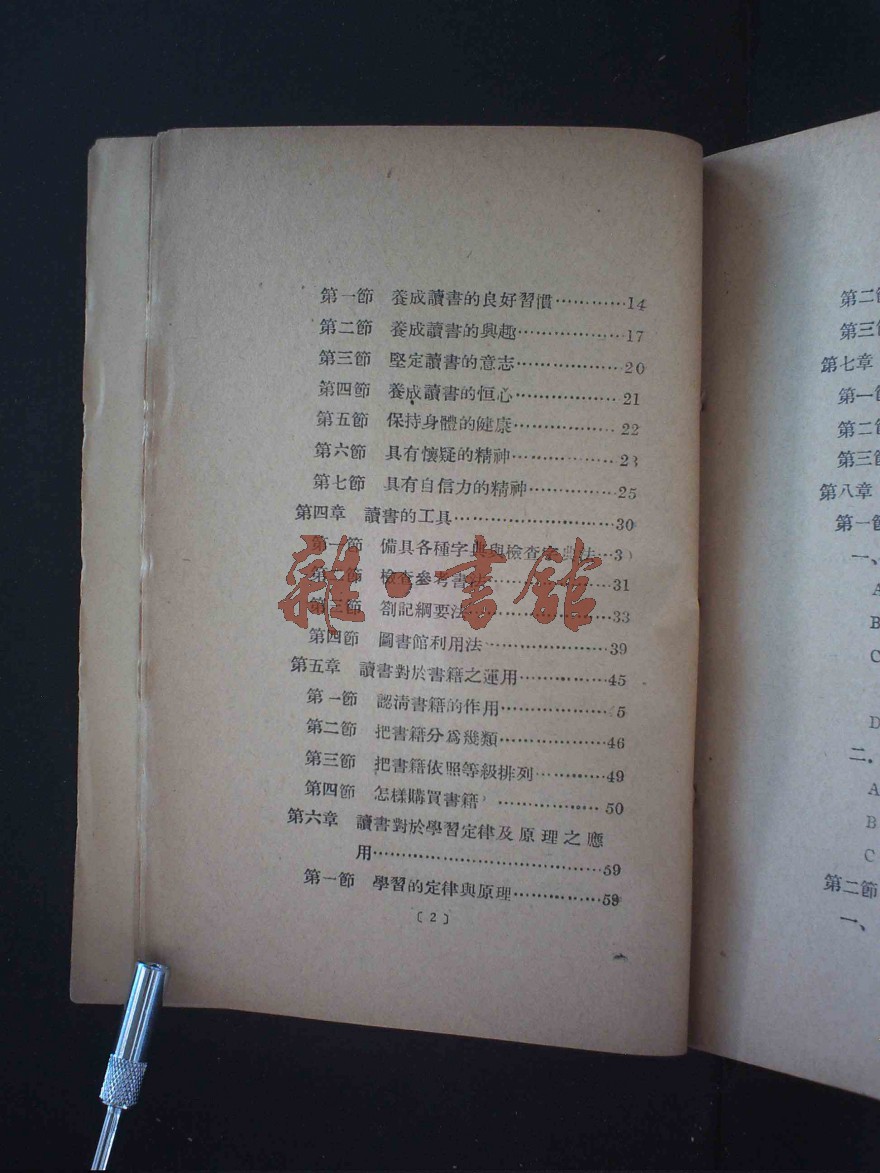 第一節 養成讀書的良好習慣…………14
第二節 養成讀書的興趣………………17
第三節 堅定讀書的意志………………20
第四節 養成讀書的恒心………………21
第五節 保持身體的健康………………22
第六節 具有懷疑的精神………………23
第七節 具有自信力的精神……………25
第四章 讀書的工具……………………30
第一節 備具各種字典與檢查字典法…3)
第二節 檢查參考書法…………………31
第三節 劄記綱要法……………………33
第四節 圖書館利用法…………………39
第五章 讀書對於書籍之運用……………45
第一節 認清書籍的作用………………5
第二節 把書籍分爲幾類………………46
第三節 把書籍依照等級排列…………49
第四節 怎樣購買書籍………………50
第六章 讀書對於學習定律及原理之應
用…………………………………59
第一節 學習的定律與原理……………59
〔2〕
雜·書館
第二節
第三節
第七章
第一節
第二節
第三節
第八章
第一節
一、
A
B
C
D
二.
A
B
C
第二節
一、